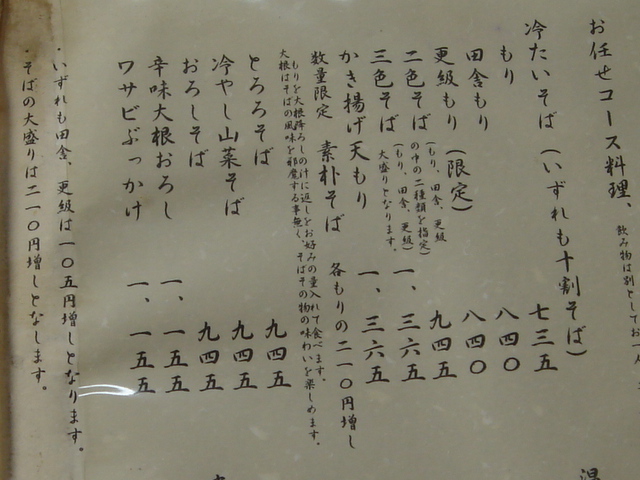 お任せコース料理、飲み物は別としてお一人
冷たいそば（いずれも十割そば）
もり 七三五
田舎もり 八四〇
更級もり（限定） 八四〇
二色そば（もり、田舎、更級の中の二種類を指定） 九四五
三色そば（もり、田舎、更級）大盛りとなります。 一、三六五
かき揚げ天もり 一、三六五
数量限定 素朴そば 各もりの二一〇円増し
もりを大根降ろしの汁に返しをお好みの量入れて食べます。
大根はそばの風味を邪魔する事無く、そばその物の味わいを楽しめます。
とろろそば 九四五
冷やし山菜そば 九四五
おろしそば 九四五
辛味大根おろし 一、一五五
ワサビぶっかけ 一、一五五
・いずれも田舎、更級は一〇五円増しとなります。
・そばの大盛りは二一〇円増しとなします。